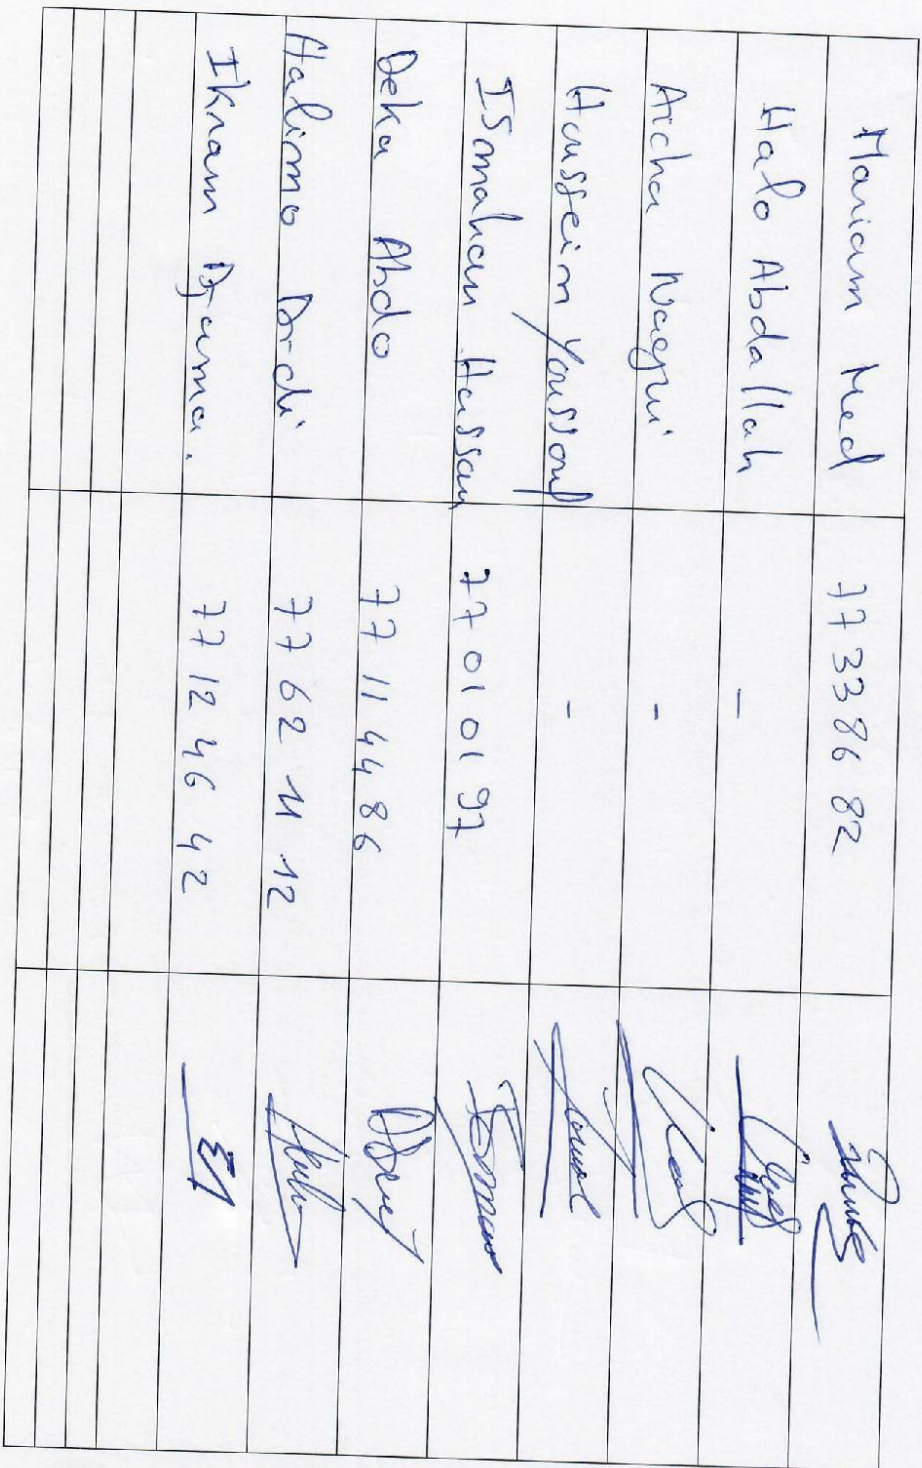 Mariam Med 77 33 86 82
Halo Abdallah -
Aicha Nagui -
Houssein Youssouf -
ISmahan Hassan 77 01 01 97
Deka Abdo 77 11 44 86
Halimo Dirdi 77 62 11 12
Ikram Djama. 77 12 46 42